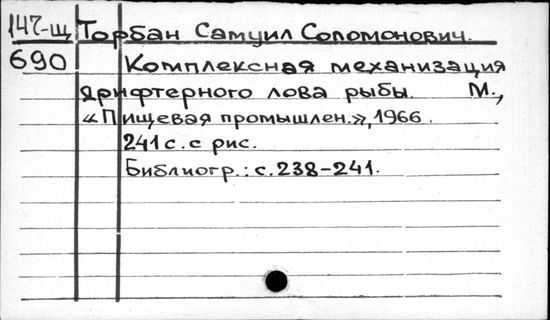 147-щ Торбан Самуил Соломонович.
690 Комплексная механизация
дрифтерного лова рыбы. М.,
«Пищевая промышлен.», 1966.
241 с. с рис.
Библиогр.: с. 238-241.